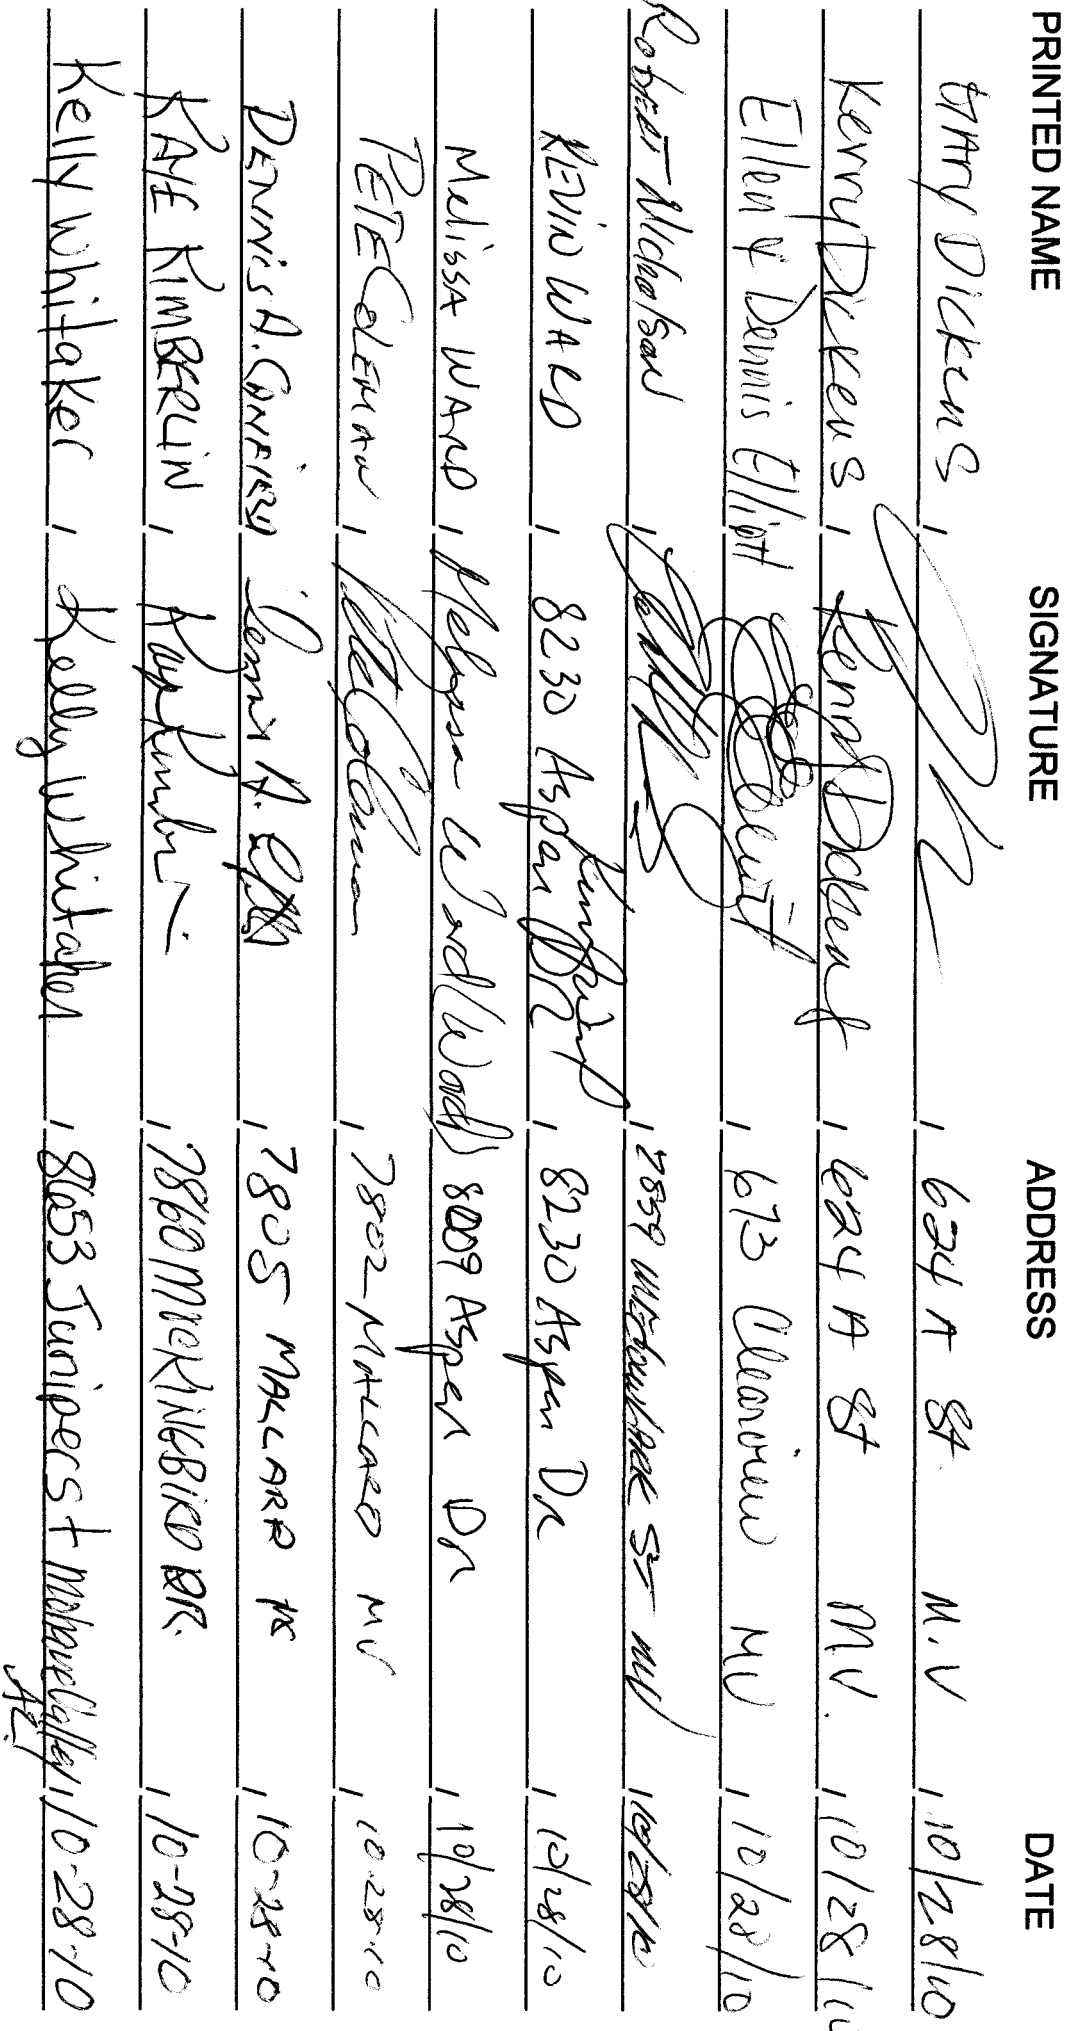 PRINTED NAME SIGNATURE ADDRESS DATE
GARY DICKENS 624 A St. M.V 10/28/10
Kerry Dickens 624 A St M.V. 10/28/10
Ellen & Dennis Elliott 673 Clearview MV 10/28/10
Robert Nicholson 2859 Meadowlark St MV 10/28/10
KEVIN WARD 8230 Aspen Dr 8230 Aspen Dr 10/28/10
Melissa WARD Melissa Ward (Ward) 8009 Aspen Dr 10/28/10
PETE COLEMAN Pete Coleman 7802 MALLARD MV 10-28-10
DENNIS A. Dennis A. 7805 MALLARD 10-28-10
KAYE KIMBERLIN 7860 MOCKINGBIRD DR. 10-28-10
Kelly Whitaker Kelly Whitaker 8653 Juniper St Mohave Valley AZ. 10-28-10